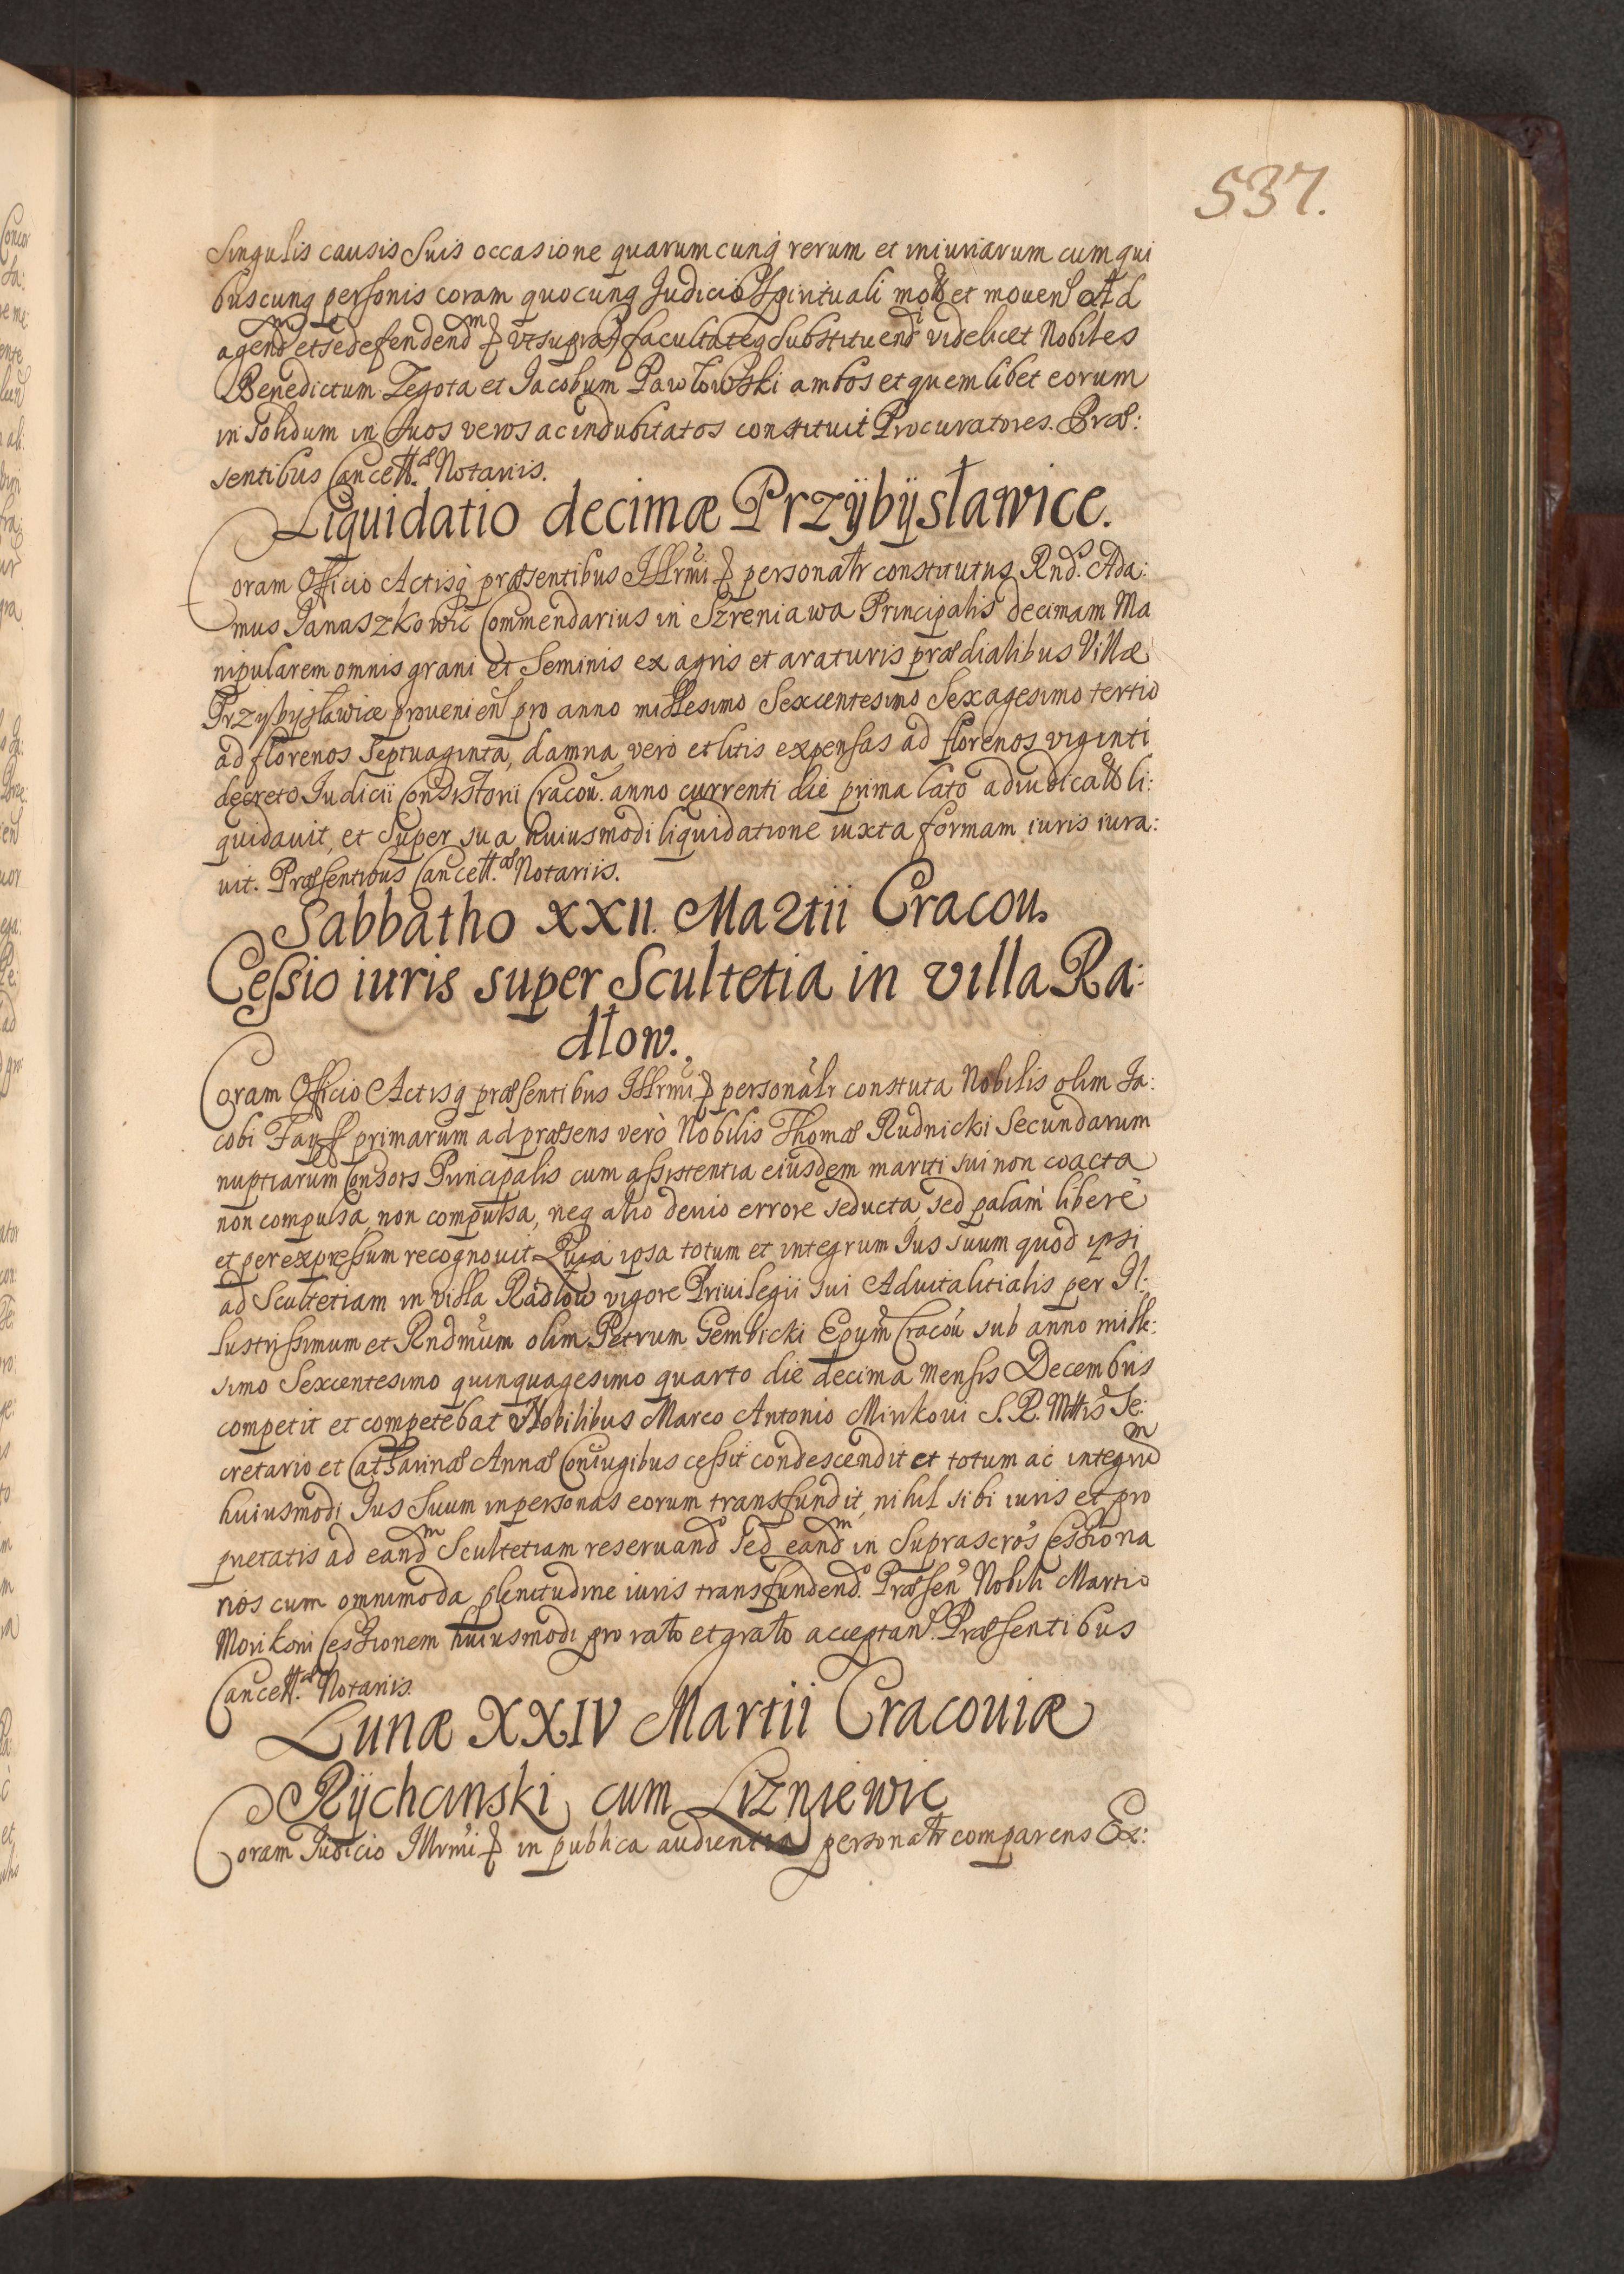 537.
Singulis causis Suis occasione quarumcunq rerum et iniuriarum cum qui
buscunq personis coram quocunq Judicio Spirituali motis et mouen Ad
agendm et se defendendm & vt supra facultateq Substituendi videlicet Nobiles
Benedictum Zegota et Jacobum Pawłowski ambos et quemlibet eorum
in Solidum in Suos veros ac indubitatos constituit Procuratores. Præ:
sentibus Cancell.æ Notariis.
Liquidatio decimæ Przÿbÿsławice.
Coram Officio Actisq præsentibus Illrmi & personalr constitutus Rnd. Ada:
mus Januszkowic Commendarius in Szreniawa Principalis decimam Ma
nipularem omnis grani et Seminis ex agris et araturis prædialibus Villæ
Przybysławice prouenien pro anno millesimo Sexcentesimo Sexagesimo tertio
ad florenos Septuaginta, damna vero et litis expensas ad florenos viginti
decreto Judicii Consistorii Cracou. anno currenti die prima lato adiudicatis li:
quidauit, et Super sua huiusmodi liquidatione iuxta formam iuris iura:
uit. Præsentibus Cancell.æ Notariis.
Sabbatho XXII. Martii Cracou.
Cessio iuris super Scultetia in villa Ra:
dłow.
Coram Officio Actisq præsentibus Illrmi & personalr constuta Nobilis olim Ja:
cobi Fayff primarum ad præsens verò Nobilis Thomæ Rudnicki Secundarum
nuptiarum Consors Principalis cum assistentia eiusdem mariti sui non coacta
non compulsa, non compulsa, neq alio deuio errore seducta, sed palam liberè
et per expressum recognouit Quia ipsa totum et integrum Jus suum quod ipsi
ad Scultetiam in villa Radłow vigore Priuilegii sui Aduitalitialis per Il:
lustrissimum et Rndmum olim Petrum Gembicki Epum Cracou sub anno mille:
simo Sexcentesimo quinquagesimo quarto die decima Mensis Decembris
competit et competebat Nobilibus Marco Antonio Mirikoni S. R. Mttis Se:
cretario et Catharinæ Annæ Coniugibus cessit condescendit et totum ac integrum
huiusmodi Jus Suum in personas eorum transfundit, nihil sibi iuris et pro
prietatis ad eandm Scultetiam reseruando Sed eandm in Suprascros Cessiona
rios cum omnimoda plenitudine iuris transfundendo. Præsen Nobili Martio
Morikoni Cessionem huiusmodi pro rato et grato acceptan. Præsentibus
Cancell.æ Notariis.
Lunæ XXIV Martii Cracouiæ
Rÿchanski cum Lizniewic
Coram Judicio Illrmi & in publica audientia personalr comparens Ex: